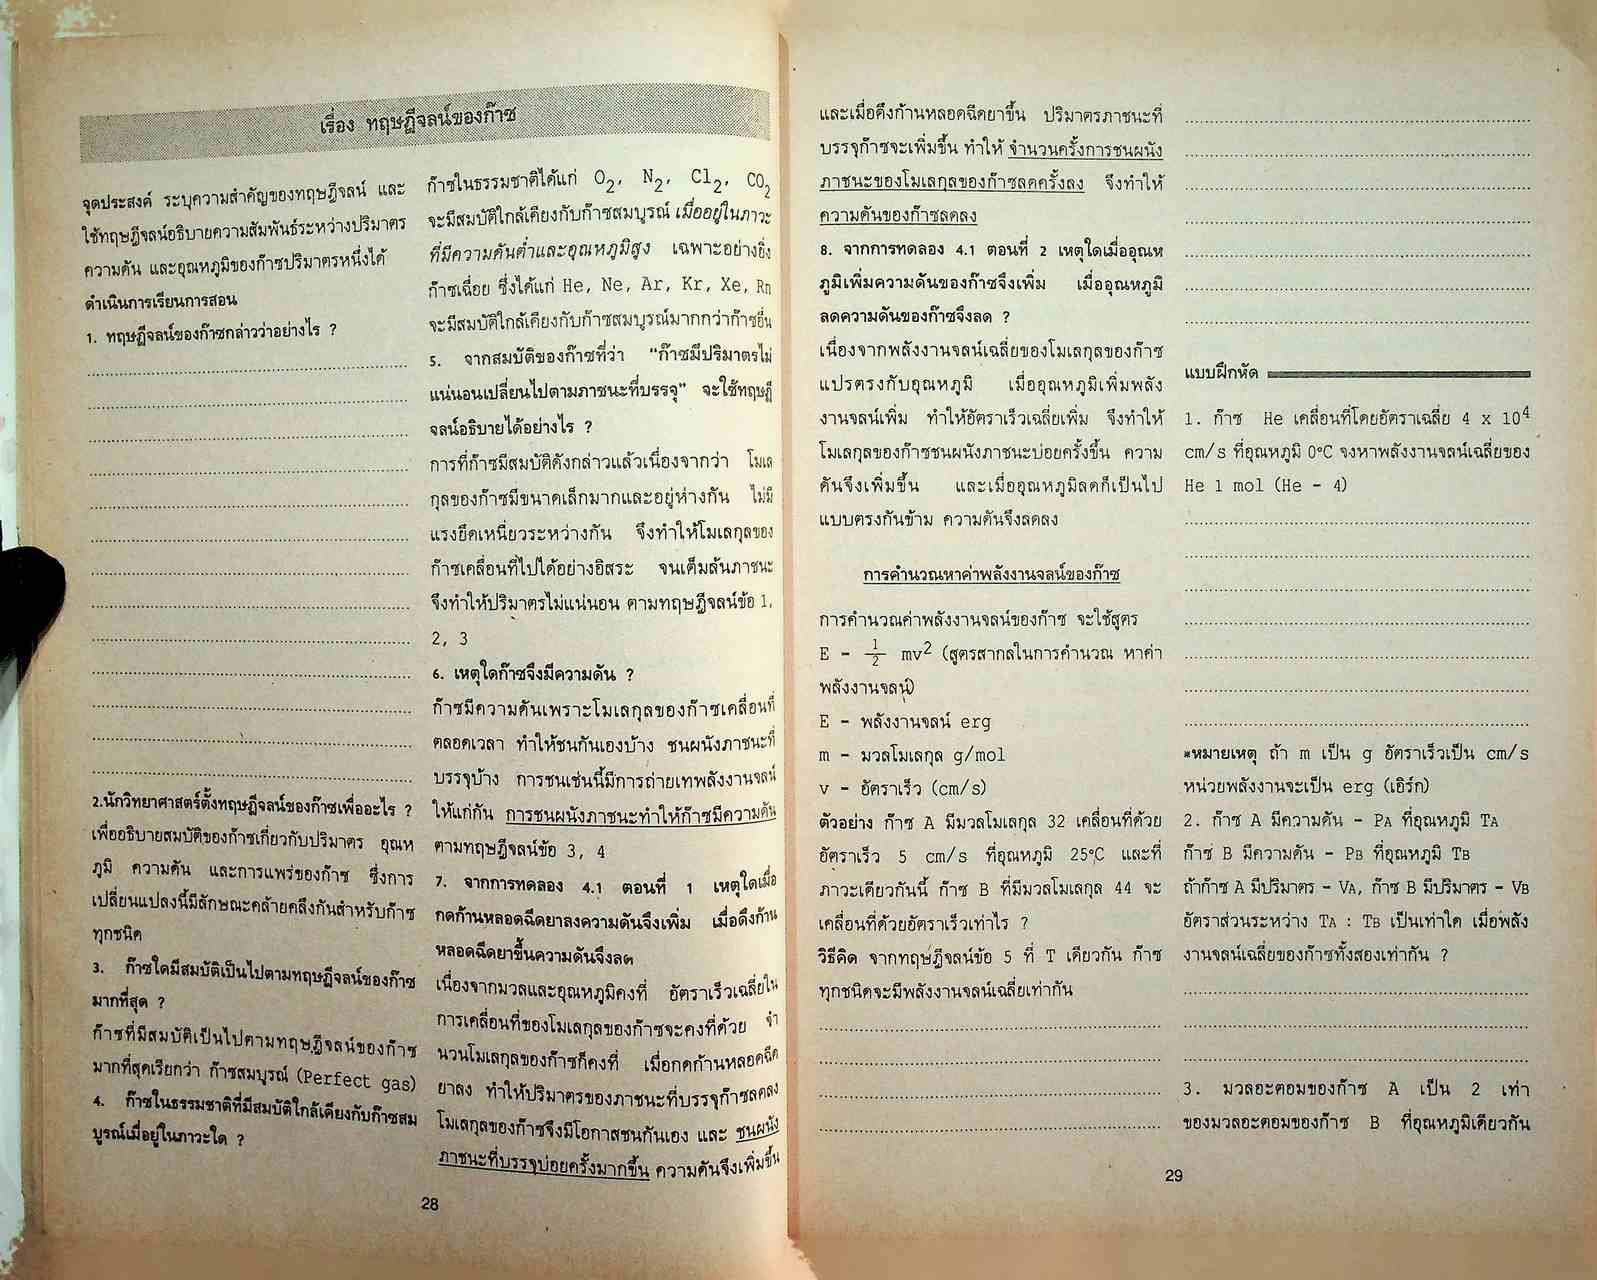 เรื่อง ทฤษฎีจลน์ของก๊าซ
จุดประสงค์ ระบุความสำคัญของทฤษฎีจลน์ และ
ใช้ทฤษฎีจลน์อธิบายความสัมพันธ์ระหว่างปริมาตร
ความดัน และอุณหภูมิของก๊าซปริมาตรหนึ่งได้
ดำเนินการเรียนการสอน
1. ทฤษฎีจลน์ของก๊าซกล่าวว่าอย่างไร ?
2.นักวิทยาศาสตร์ตั้งทฤษฎีจลน์ของก๊าซเพื่ออะไร ?
เพื่ออธิบายสมบัติของก๊าซเกี่ยวกับปริมาตร อุณห
ภูมิ ความดัน และการแพร่ของก๊าซ ซึ่งการ
เปลี่ยนแปลงนี้มีลักษณะคล้ายคลึงกันสำหรับก๊าซ
ทุกชนิด
3. ก๊าซใดมีสมบัติเป็นไปตามทฤษฎีจลน์ของก๊าซ
มากที่สุด ?
ก๊าซที่มีสมบัติเป็นไปตามทฤษฎีจลน์ของก๊าซ
มากที่สุดเรียกว่า ก๊าซสมบูรณ์ (Perfect gas)
4. ก๊าซในธรรมชาติที่มีสมบัติใกล้เคียงกับก๊าซสม
บูรณ์เมื่ออยู่ในภาวะใด ?
ก๊าซในธรรมชาติได้แก่ O₂, N₂, Cl₂, CO₂
จะมีสมบัติใกล้เคียงกับก๊าซสมบูรณ์ เมื่ออยู่ในภาวะ
ที่มีความดันต่ำและอุณหภูมิสูง เฉพาะอย่างยิ่ง
ก๊าซเฉื่อย ซึ่งได้แก่ He, Ne, Ar, Kr, Xe, Rn
จะมีสมบัติใกล้เคียงกับก๊าซสมบูรณ์มากกว่าก๊าซอื่น
5. จากสมบัติของก๊าซที่ว่า "ก๊าซมีปริมาตรไม่
แน่นอนเปลี่ยนไปตามภาชนะที่บรรจุ" จะใช้ทฤษฎี
จลน์อธิบายได้อย่างไร ?
การที่ก๊าซมีสมบัติดังกล่าวแล้วเนื่องจากว่า โมเล
กุลของก๊าซมีขนาดเล็กมากและอยู่ห่างกัน ไม่มี
แรงยึดเหนี่ยวระหว่างกัน จึงทำให้โมเลกุลของ
ก๊าซเคลื่อนที่ไปได้อย่างอิสระ จนเต็มล้นภาชนะ
จึงทำให้ปริมาตรไม่แน่นอน ตามทฤษฎีจลน์ข้อ 1,
2, 3
6. เหตุใดก๊าซจึงมีความดัน ?
ก๊าซมีความดันเพราะโมเลกุลของก๊าซเคลื่อนที่
ตลอดเวลา ทำให้ชนกันเองบ้าง ชนผนังภาชนะที่
บรรจุบ้าง การชนเช่นนี้มีการถ่ายเทพลังงานจลน์
ให้แก่กัน การชนผนังภาชนะทำให้ก๊าซมีความดัน
ตามทฤษฎีจลน์ข้อ 3, 4
7. จากการทดลอง 4.1 ตอนที่ 1 เหตุใดเมื่อ
กดก้านหลอดฉีดยาลงความดันจึงเพิ่ม เมื่อดึงก้าน
หลอดฉีดยาขึ้นความดันจึงลด
เนื่องจากมวลและอุณหภูมิคงที่ อัตราเร็วเฉลี่ยใน
การเคลื่อนที่ของโมเลกุลของก๊าซจะคงที่ด้วย จำ
นวนโมเลกุลของก๊าซก็คงที่ เมื่อกดก้านหลอดฉีด
ยาลง ทำให้ปริมาตรของภาชนะที่บรรจุก๊าซลดลง
โมเลกุลของก๊าซจึงมีโอกาสชนกันเอง และ ชนผนัง
ภาชนะที่บรรจุบ่อยครั้งมากขึ้น ความดันจึงเพิ่มขึ้น
28
และเมื่อดึงก้านหลอดฉีดยาขึ้น ปริมาตรภาชนะที่
บรรจุก๊าซจะเพิ่มขึ้น ทำให้ จำนวนครั้งการชนผนัง
ภาชนะของโมเลกุลของก๊าซลดครั้งลง จึงทำให้
ความดันของก๊าซลดลง
8. จากการทดลอง 4.1 ตอนที่ 2 เหตุใดเมื่ออุณห
ภูมิเพิ่มความดันของก๊าซจึงเพิ่ม เมื่ออุณหภูมิ
ลดความดันของก๊าซจึงลด ?
เนื่องจากพลังงานจลน์เฉลี่ยของโมเลกุลของก๊าซ
แปรตรงกับอุณหภูมิ เมื่ออุณหภูมิเพิ่มพลัง
งานจลน์เพิ่ม ทำให้อัตราเร็วเฉลี่ยเพิ่ม จึงทำให้
โมเลกุลของก๊าซชนผนังภาชนะบ่อยครั้งขึ้น ความ
ดันจึงเพิ่มขึ้น และเมื่ออุณหภูมิลดก็เป็นไป
แบบตรงกันข้าม ความดันจึงลดลง
การคำนวณหาค่าพลังงานจลน์ของก๊าซ
การคำนวณค่าพลังงานจลน์ของก๊าซ จะใช้สูตร
E - 1/2 mv² (สูตรสากลในการคำนวณ หาค่า
พลังงานจลน์)
E - พลังงานจลน์ erg
m - มวลโมเลกุล g/mol
v - อัตราเร็ว (cm/s)
ตัวอย่าง ก๊าซ A มีมวลโมเลกุล 32 เคลื่อนที่ด้วย
อัตราเร็ว 5 cm/s ที่อุณหภูมิ 25°C และที่
ภาวะเดียวกันนี้ ก๊าซ B ที่มีมวลโมเลกุล 44 จะ
เคลื่อนที่ด้วยอัตราเร็วเท่าไร ?
วิธีคิด จากทฤษฎีจลน์ข้อ 5 ที่ T เดียวกัน ก๊าซ
ทุกชนิดจะมีพลังงานจลน์เฉลี่ยเท่ากัน
แบบฝึกหัด
1. ก๊าซ He เคลื่อนที่โดยอัตราเฉลี่ย 4 x 10⁴
cm/s ที่อุณหภูมิ 0°C จงหาพลังงานจลน์เฉลี่ยของ
He 1 mol (He - 4)
*หมายเหตุ ถ้า m เป็น g อัตราเร็วเป็น cm/s
หน่วยพลังงานจะเป็น erg (เอิร์ก)
2. ก๊าซ A มีความดัน - PA ที่อุณหภูมิ TA
ก๊าซ B มีความดัน - PB ที่อุณหภูมิ TB
ถ้าก๊าซ A มีปริมาตร - VA, ก๊าซ B มีปริมาตร - VB
อัตราส่วนระหว่าง TA : TB เป็นเท่าใด เมื่อพลัง
งานจลน์เฉลี่ยของก๊าซทั้งสองเท่ากัน ?
3. มวลอะตอมของก๊าซ A เป็น 2 เท่า
ของมวลอะตอมของก๊าซ B ที่อุณหภูมิเดียวกัน
29